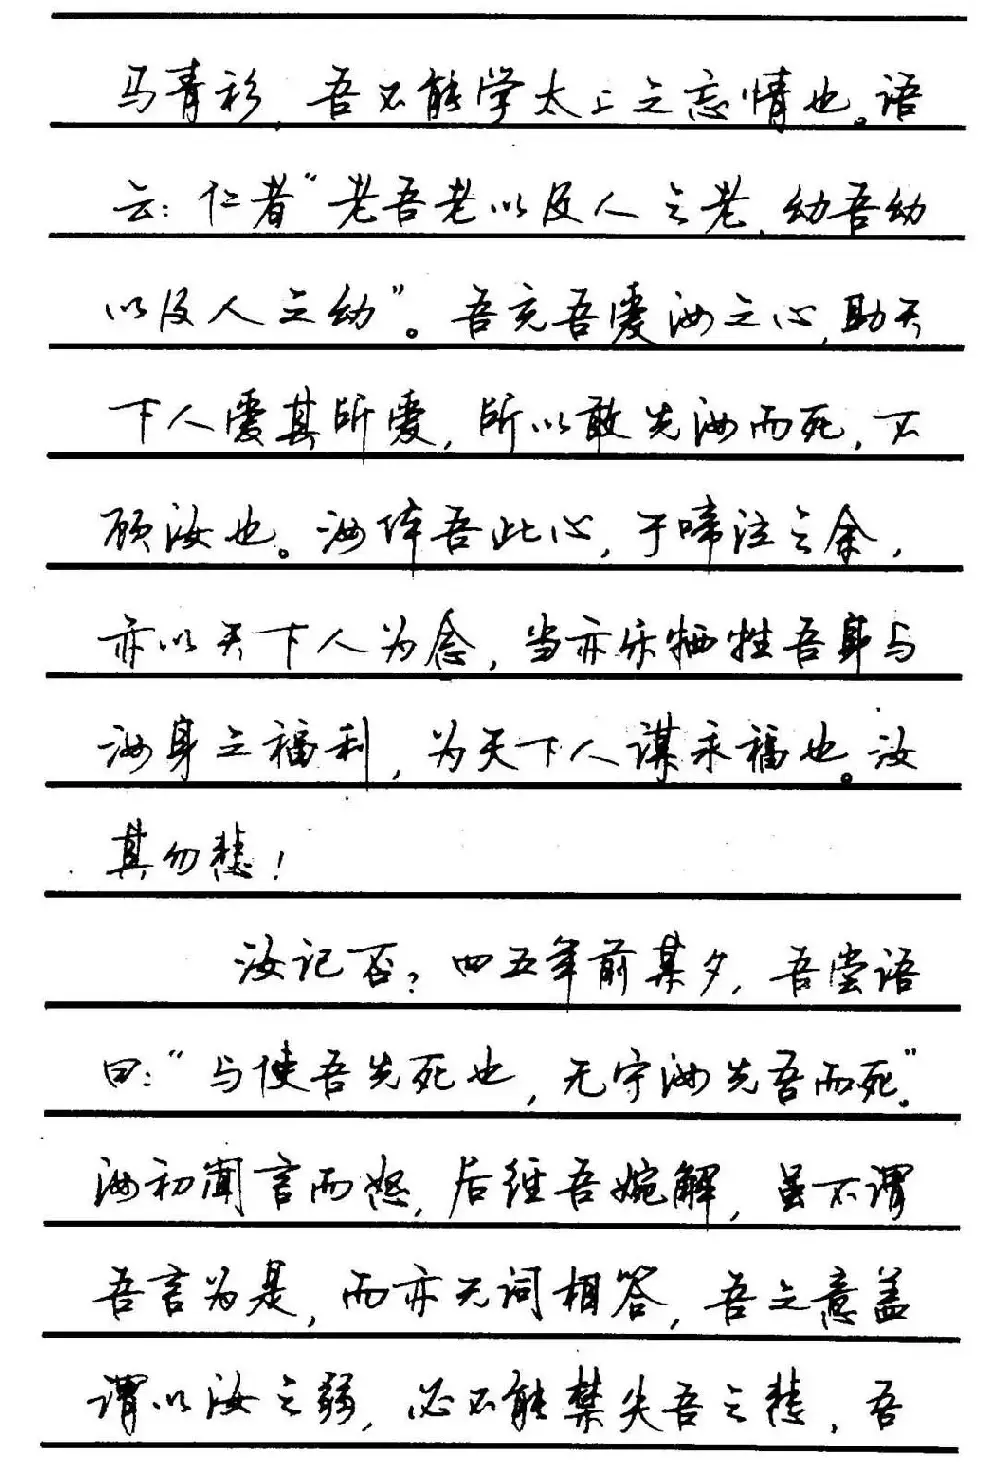 马青衫，吾不能学太上之忘情也。语
云：仁者“老吾老以及人之老，幼吾幼
以及人之幼”。吾充吾爱汝之心，助天
下人爱其所爱，所以敢先汝而死，不
顾汝也。汝体吾此心，于啼泣之余，
亦以天下人为念，当亦乐牺牲吾身与
汝身之福利，为天下人谋永福也。汝
其勿悲！
汝记否？四五年前某夕，吾尝语
曰：“与使吾先死也，无宁汝先吾而死。”
汝初闻言而怒，后经吾婉解，虽不谓
吾言为是，而亦无词相答，吾之意盖
谓以汝之弱，必不能禁失吾之悲，吾